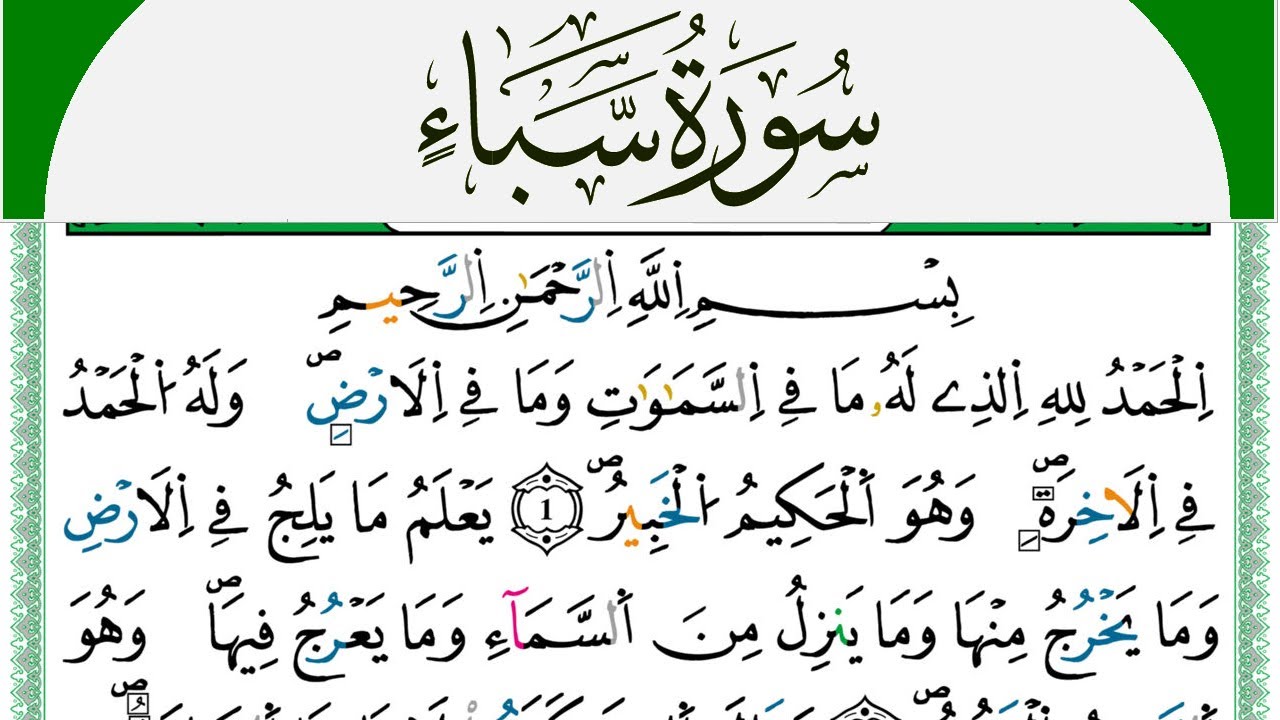 سُورَةُ سَبَإٍ
بِسْمِ اِللَّهِ اِلرَّحْمَٰنِ اِلرَّحِيمِ
اِلْحَمْدُ لِلهِ اِلذِے لَهُۥ مَا فِے اِلسَّمَٰوَٰتِ وَمَا فِے اِلَارْضِۖ وَلَهُ اُلْحَمْدُ
فِے اِلَاخِرَةِۖ وَهُوَ اَلْحَكِيمُ اُلْخَبِيرُۖ 1 يَعْلَمُ مَا يَلِجُ فِے اِلَارْضِ
وَمَا يَخْرُجُ مِنْهَا وَمَا يَنزِلُ مِنَ اَلسَّمَآءِ وَمَا يَعْرُجُ فِيهَاۖ وَهُوَ